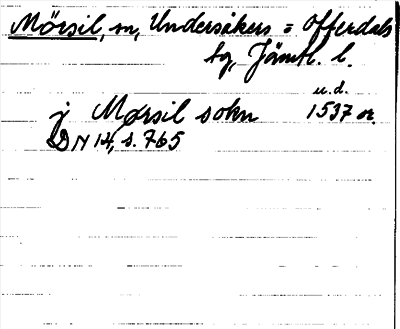 Mörsil, sn, Undersåkers = Offerdals
tg, Jämtl. l.
u.d.
j Mørsil sokn 1537 or.
DN 14, s. 765